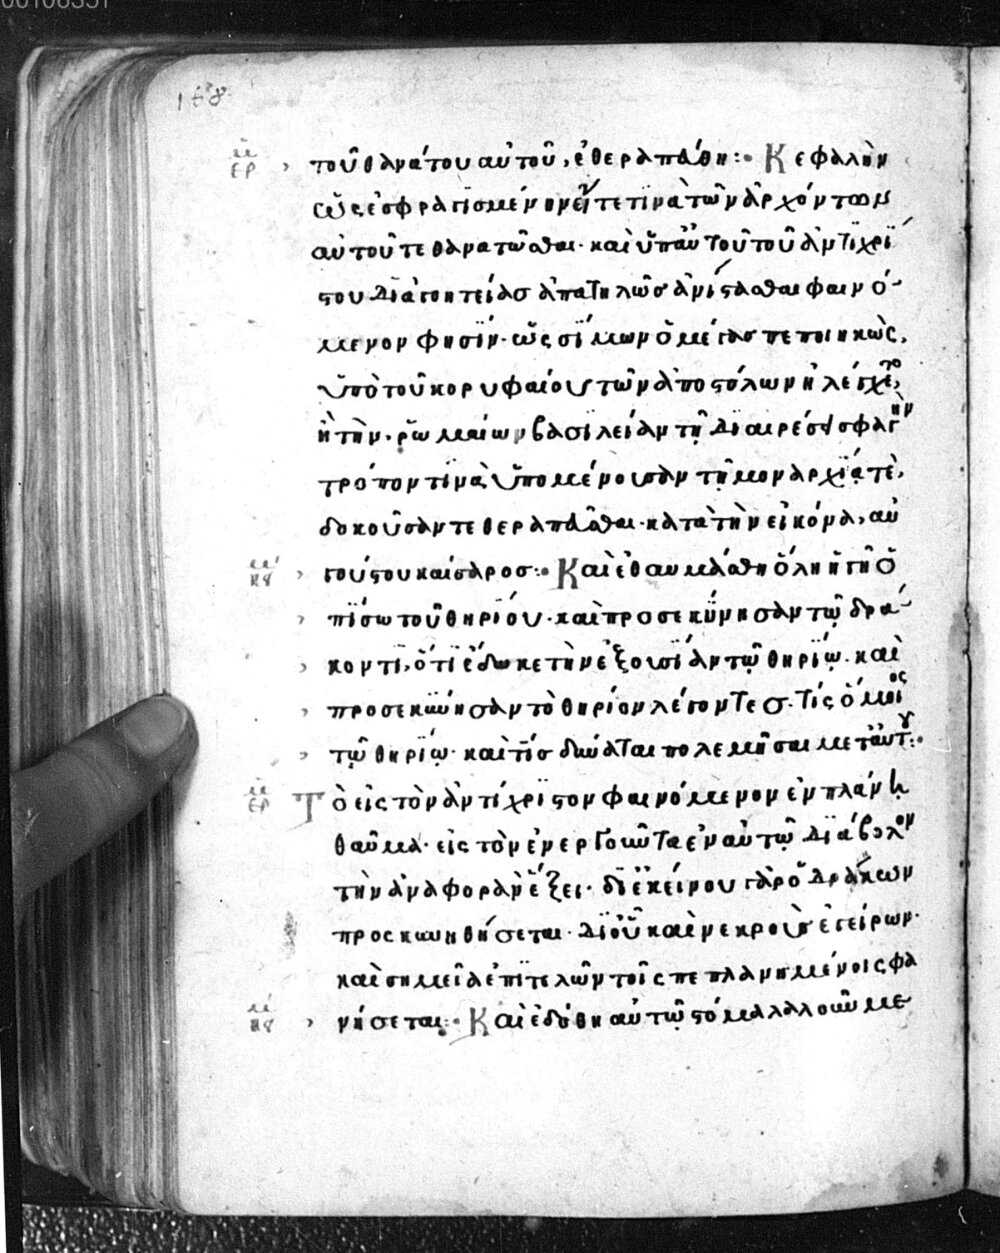 00108351
168
ερ τοῦ θανάτου αὐτοῦ, ἐθεραπεύθη:· Κεφαλὴν
ὡς ἐσφραγϊσμένην εἴτε τϊνὰ τῶν ἀρχόντων
αὐτοῦ τεθανατῶσθαι· καὶ ὑπ' αὐτοῦ τοῦ ἀντϊχρί
στου διὰ γοητείας ἀπατηλῶς ἀνίστασθαι φαινό
μενον φησϊν· ὡς σίμων ὁ μέγας πεποιηκὼς,
ὑπὸ τοῦ κορυφαίου τῶν ἀποστόλων ἠλέγχετο,
ἢ τὴν ῥωμαίων βασιλείαν τῇ διαιρέσει σφαγὴν
τρόπον τϊνὰ ὑπομένουσαν τῇ μοναρχίᾳ τὲ,
δοκοῦσαν τεθεραπεῦσθαι· κατὰ τὴν εἰκόνα, αὐ
κει γούστου καίσαρος:· Καὶ ἐθαυμάσθη ὅλη ἡ γῆ ὀ
πϊσω τοῦ θηρϊου· καὶ προσεκύνησαν τῷ δρά
κοντϊ, ὅτϊ ἔδωκε τὴν ἐξουσίαν τῷ θηρϊῳ· καὶ
προσεκύνησαν τὸ θηρίον λέγοντες· τίς ὅμοιος
τῷ θηρϊῳ· καὶ τϊς δύναται πολεμῆσαι μετ' αὐτοῦ:·
ερ Τὸ εἰς τὸν ἀντίχρϊστον φαινόμενον ἐν πλάνῃ
θαῦμα· εἰς τὸν ἐνεργοῦντα ἐν αὐτῷ διάβολον
τὴν ἀναφορὰν ἕξει· δϊ ἐκείνου γὰρ ὁ δράκων
προσκυνηθήσεται· δϊ οὗ καὶ νεκροὺς ἐγείρων·
καὶ σημεῖα ἐπϊτελῶν τοῖς πεπλανημένοις φα
κει νήσεται:· Καὶ ἐδόθη αὐτῷ στόμα λαλοῦν με